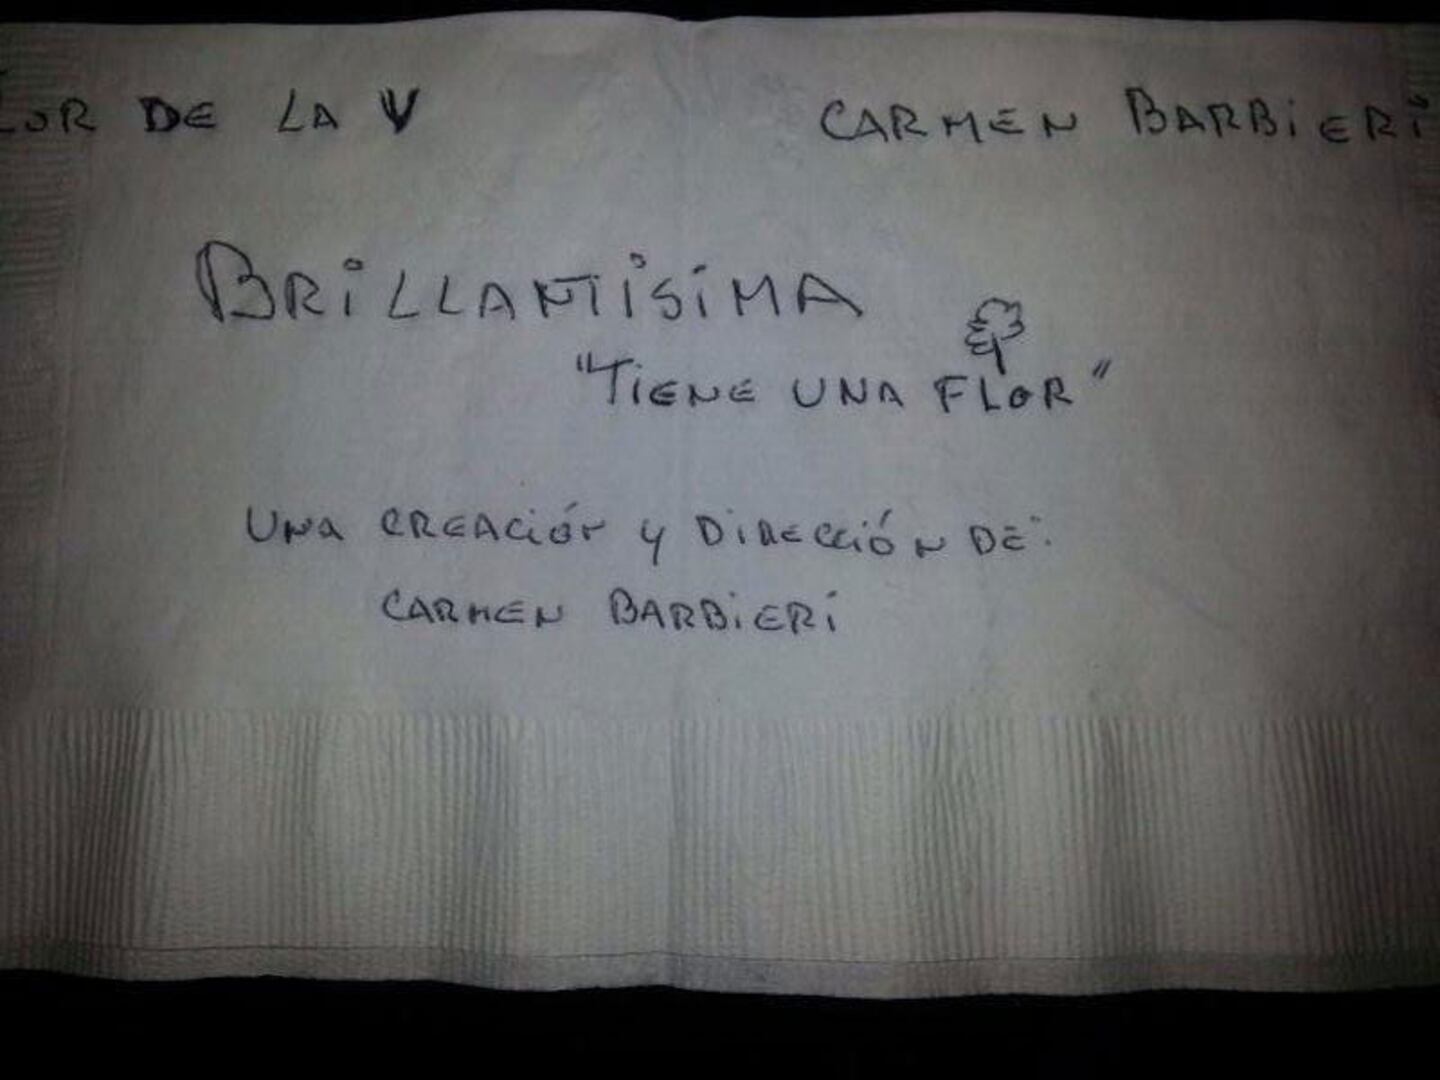 LOR DE LA V CARMEN BARBiERi
BRiLLANTiSiMA
"TiENE UNA FLOR"
UNA CREACiÓN Y DiRECCiÓN DE:
CARMEN BARBiERi